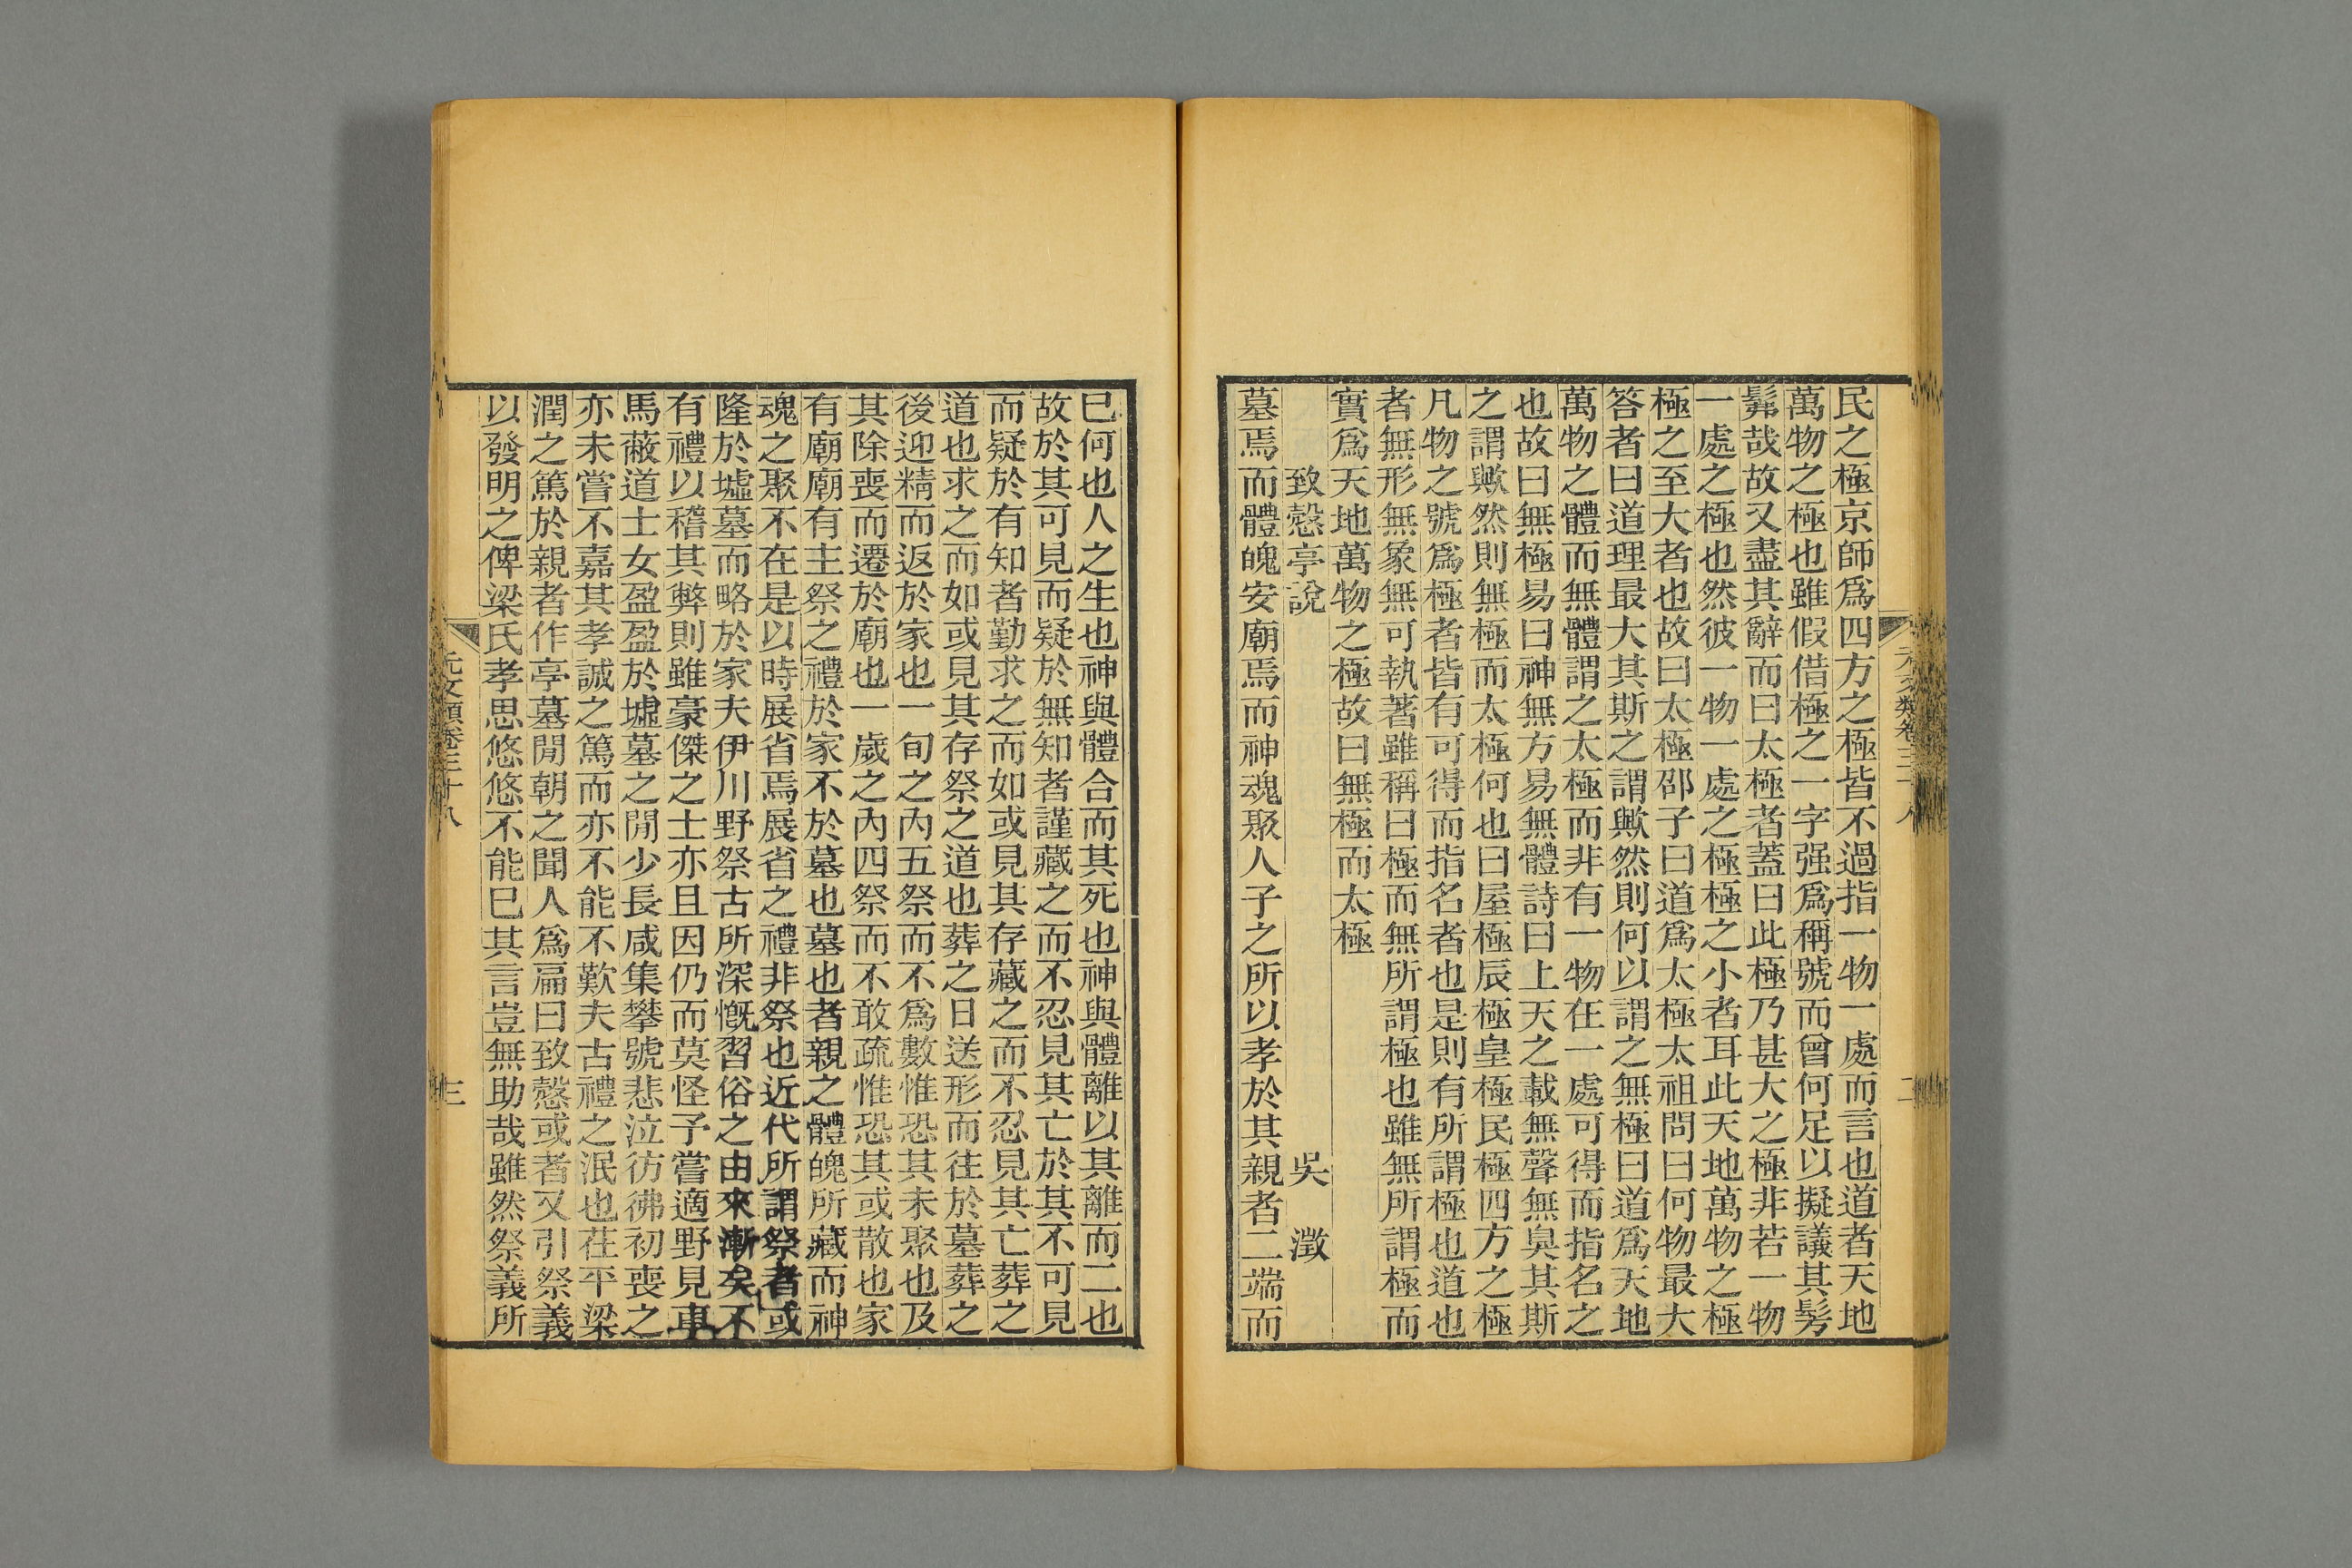 民之極京師爲四方之極皆不過指一物一處而言也道者天地
萬物之極也雖假借極之一字强爲稱號而曾何足以擬議其髣
髴哉故又盡其辭而曰太極者蓋曰此極乃甚大之極非若一物
一處之極也然彼一物一處之極極之小者耳此天地萬物之極
極之至大者也故曰太極邵子曰道爲太極太祖問曰何物最大
答者曰道理最大其斯之謂歟然則何以謂之無極曰道爲天地
萬物之體而無體謂之太極而非有一物在一處可得而指名之
也故曰無極易曰神無方易無體詩曰上天之載無聲無臭其斯
之謂歟然則無極而太極何也曰屋極辰極皇極民極四方之極
凡物之號爲極者皆有可得而指名者也是則有所謂極也道也
者無形無象無可執著雖稱曰極而無所謂極也雖無所謂極而
實爲天地萬物之極故曰無極而太極
致慤亭說 吳 澂
墓焉而體魄安廟焉而神魂聚人子之所以孝於其親者二端而
元文類卷三十八 二
巳何也人之生也神與體合而其死也神與體離以其離而二也
故於其可見而疑於無知者謹藏之而不忍見其亡於其不可見
而疑於有知者勤求之而如或見其存藏之而不忍見其亡葬之
道也求之而如或見其存祭之道也葬之日送形而往於墓葬之
後迎精而返於家也一旬之內五祭而不爲數惟恐其未聚也及
其除喪而遷於廟也一歲之內四祭而不敢疏惟恐其或散也家
有廟廟有主祭之禮於家不於墓也墓也者親之體魄所藏而神
魂之聚不在是以時展省焉展省之禮非祭也近代所謂祭者或
隆於墟墓而略於家夫伊川野祭古所深慨習俗之由來漸矣不
有禮以稽其弊則雖豪傑之士亦且因仍而莫怪予嘗適野見車
馬蔽道士女盈盈於墟墓之閒少長咸集攀號悲泣彷彿初喪之
亦未嘗不嘉其孝誠之篤而亦不能不歎夫古禮之泯也茌平梁
潤之篤於親者作亭墓閒朝之聞人爲扁曰致慤或者又引祭義
以發明之俾梁氏孝思悠悠不能巳其言豈無助哉雖然祭義所
元文類卷三十八 三